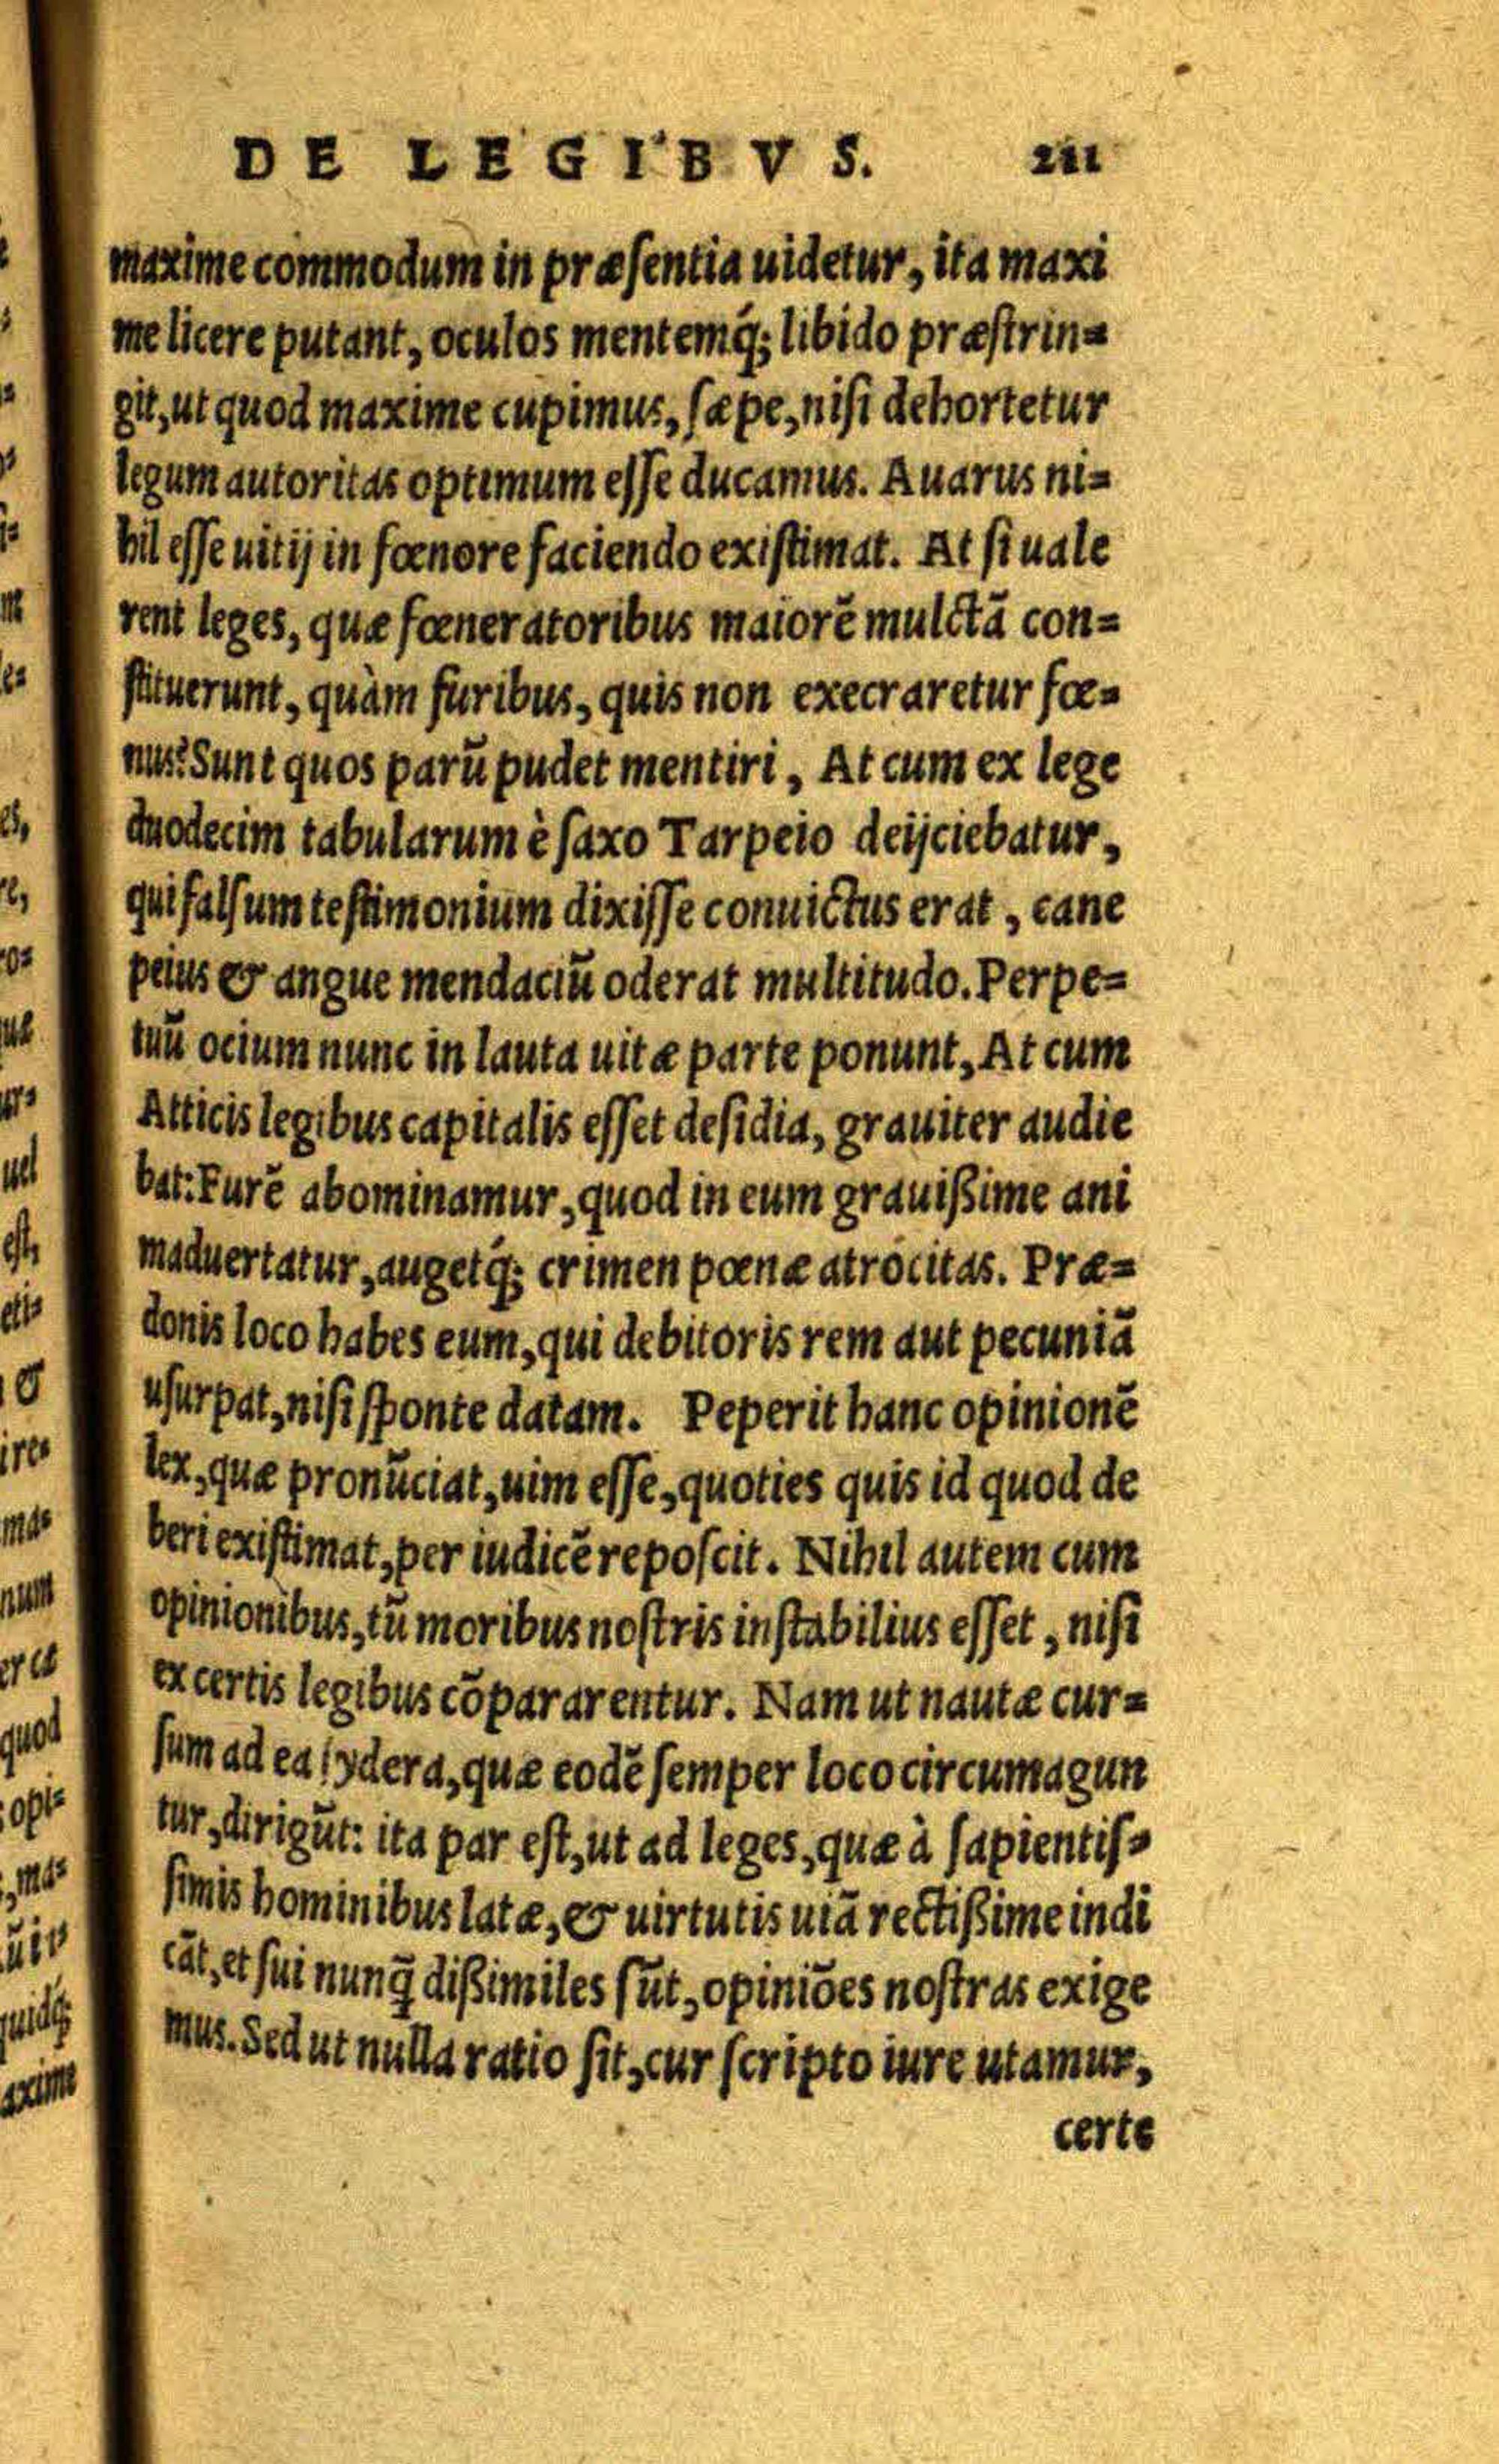 DE LEGIBVS. 211
maxime commodum in præsentia uidetur, ita maxi
me licere putant, oculos mentemq́; libido præstrin=
git, ut quod maxime cupimus, sæpe, nisi dehortetur
legum autoritas optimum esse ducamus. Auarus ni=
hil esse uitij in fœnore faciendo existimat. At si uale
rent leges, quæ fœneratoribus maiorẽ mulctã con=
stituerunt, quàm furibus, quis non execraretur fœ=
nus? Sunt quos parũ pudet mentiri, At cum ex lege
duodecim tabularum è saxo Tarpeio deijciebatur,
qui falsum testimonium dixisse conuictus erat, cane
peius & angue mendaciũ oderat multitudo. Perpe=
tuũ ocium nunc in lauta uitæ parte ponunt, At cum
Atticis legibus capitalis esset desidia, grauiter audie
bat: Furẽ abominamur, quod in eum grauißime ani
maduertatur, augetq́; crimen pœnæ atrocitas. Præ=
donis loco habes eum, qui debitoris rem aut pecuniã
usurpat, nisi sponte datam. Peperit hanc opinionẽ
lex, quæ pronũciat, uim esse, quoties quis id quod de
beri existimat, per iudicẽ reposcit. Nihil autem cum
opinionibus, tũ moribus nostris instabilius esset, nisi
ex certis legibus cõpararentur. Nam ut nautæ cur=
sum ad ea sydera, quæ eodẽ semper loco circumagun
tur, dirigũt: ita par est, ut ad leges, quæ à sapientis=
simis hominibus latæ, & uirtutis uiã rectißime indi
cãt, et sui nunq̃ dißimiles sũt, opiniões nostras exige
mus. Sed ut nulla ratio sit, cur scripto iure utamur,
certe